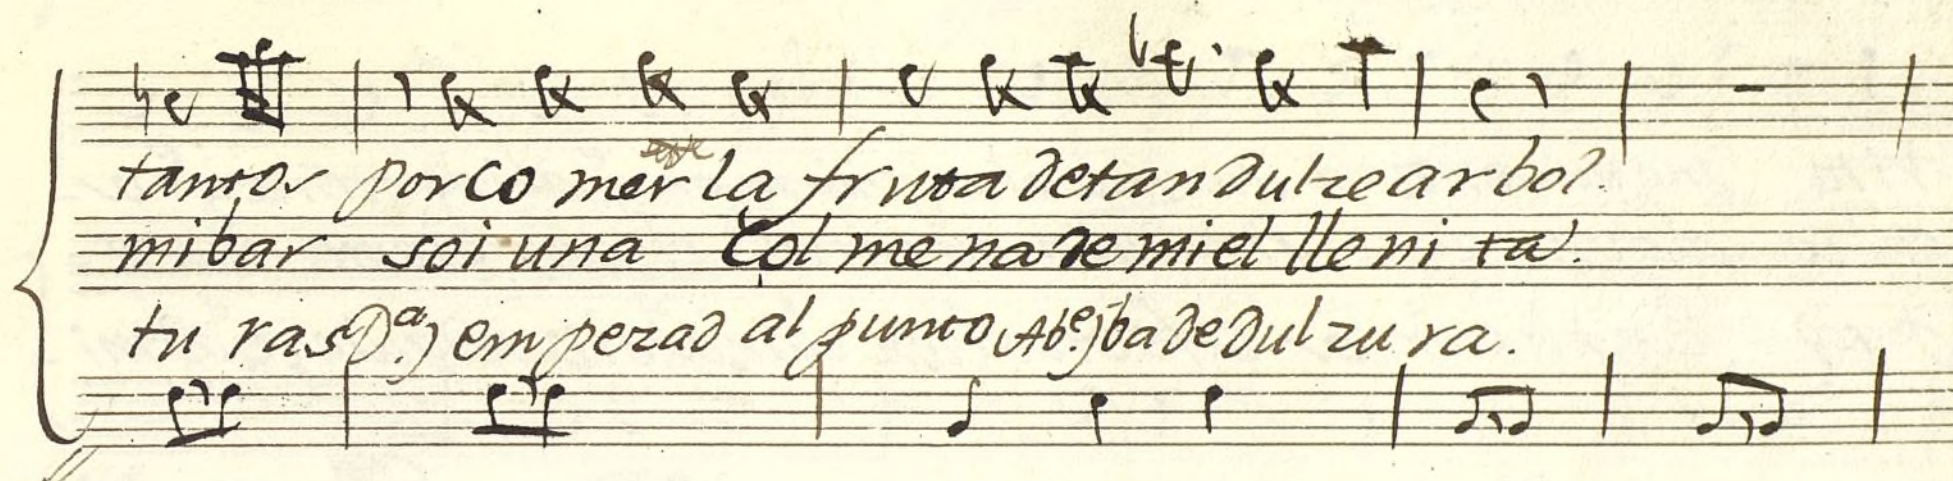 tantos por co mer la fruta de tan dulze arbol.
mibar soi una Col me na de miel lle ni ta.
tu ras Dª.) em pezad al punto Abe.) ba de dul zu ra.